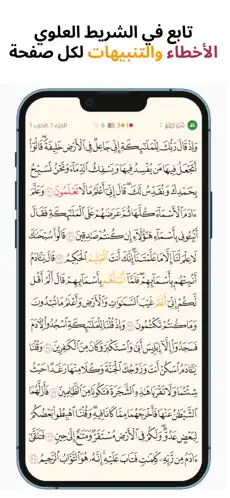 تابع في الشريط العلوي
الأخطاء والتنبيهات لكل صفحة
الجزء 1, الحزب 1
6
3
1
وَإِذْ قَالَ رَبُّكَ لِلْمَلَٰٓئِكَةِ إِنِّي جَاعِلٌ فِي ٱلْأَرْضِ خَلِيفَةً قَالُوٓا۟
أَتَجْعَلُ فِيهَا مَن يُفْسِدُ فِيهَا وَيَسْفِكُ ٱلدِّمَآءَ وَنَحْنُ نُسَبِّحُ
بِحَمْدِكَ وَنُقَدِّسُ لَكَ قَالَ إِنِّيٓ أَعْلَمُ مَا لَا تَعْلَمُونَ ٣٠ وَعَلَّمَ
ءَادَمَ ٱلْأَسْمَآءَ كُلَّهَا ثُمَّ عَرَضَهُمْ عَلَى ٱلْمَلَٰٓئِكَةِ فَقَالَ
أَنۢبِـُٔونِي بِأَسْمَآءِ هَٰٓؤُلَآءِ إِن كُنتُمْ صَٰدِقِينَ ٣١ قَالُوا۟ سُبْحَٰنَكَ
لَا عِلْمَ لَنَآ إِلَّا مَا عَلَّمْتَنَآ إِنَّكَ أَنتَ ٱلْعَلِيمُ ٱلْحَكِيمُ ٣٢ قَالَ يَٰٓـَٔادَمُ
أَنۢبِئْهُم بِأَسْمَآئِهِمْ فَلَمَّآ أَنۢبَأَهُم بِأَسْمَآئِهِمْ قَالَ أَلَمْ أَقُل
لَّكُمْ إِنِّيٓ أَعْلَمُ غَيْبَ ٱلسَّمَٰوَٰتِ وَٱلْأَرْضِ وَأَعْلَمُ مَا تُبْدُونَ
وَمَا كُنتُمْ تَكْتُمُونَ ٣٣ وَإِذْ قُلْنَا لِلْمَلَٰٓئِكَةِ ٱسْجُدُوا۟ لِـَٔادَمَ
فَسَجَدُوٓا۟ إِلَّآ إِبْلِيسَ أَبَىٰ وَٱسْتَكْبَرَ وَكَانَ مِنَ ٱلْكَٰفِرِينَ ٣٤ وَقُلْنَا
يَٰٓـَٔادَمُ ٱسْكُنْ أَنتَ وَزَوْجُكَ ٱلْجَنَّةَ وَكُلَا مِنْهَا رَغَدًا حَيْثُ
شِئْتُمَا وَلَا تَقْرَبَا هَٰذِهِ ٱلشَّجَرَةَ فَتَكُونَا مِنَ ٱلظَّٰلِمِينَ ٣٥ فَأَزَلَّهُمَا
ٱلشَّيْطَٰنُ عَنْهَا فَأَخْرَجَهُمَا مِمَّا كَانَا فِيهِ وَقُلْنَا ٱهْبِطُوا۟ بَعْضُكُمْ
لِبَعْضٍ عَدُوٌّ وَلَكُمْ فِي ٱلْأَرْضِ مُسْتَقَرٌّ وَمَتَٰعٌ إِلَىٰ حِينٍ ٣٦ فَتَلَقَّىٰٓ
ءَادَمُ مِن رَّبِّهِۦ كَلِمَٰتٍ فَتَابَ عَلَيْهِ إِنَّهُۥ هُوَ ٱلتَّوَّابُ ٱلرَّحِيمُ ٣٧